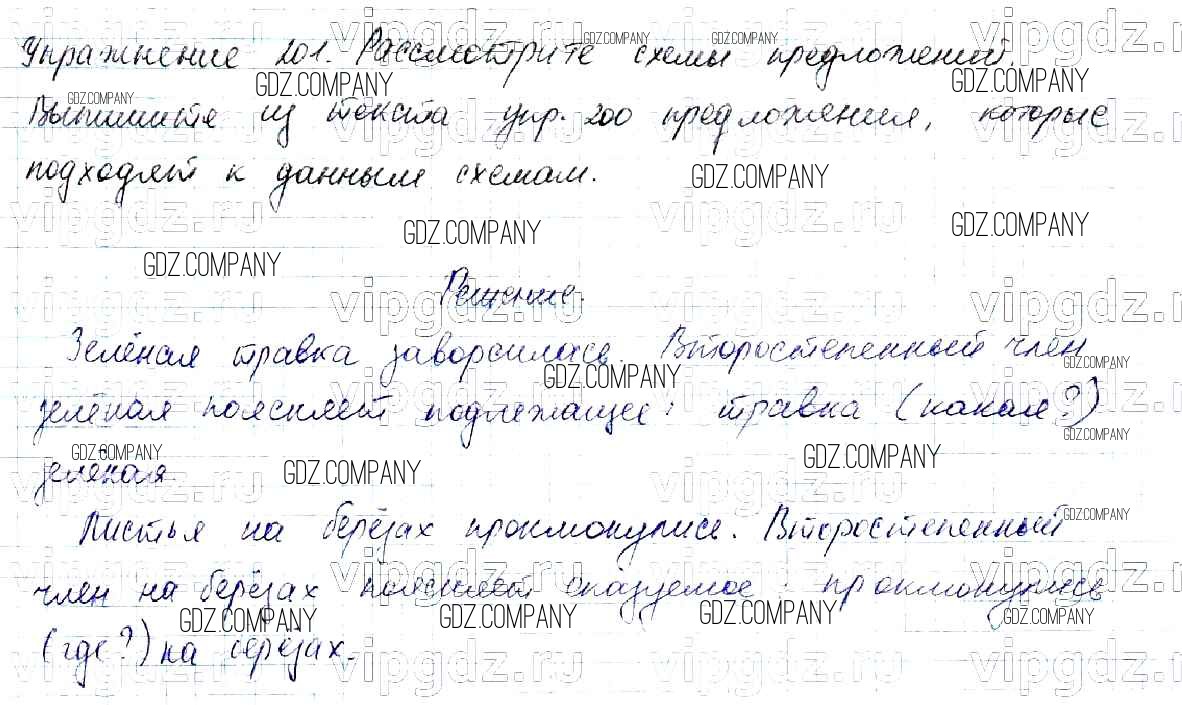 Упражнение 201. Рассмотрите схемы предложений.
Выпишите из текста упр. 200 предложения, которые
подходят к данным схемам.
Решение.
Зелёная травка заворсилась. Второстепенный член
зелёная поясняет подлежащее: травка (какая?)
зелёная.
Листья на берёзах проклюнулись. Второстепенный
член на берёзах поясняет сказуемое: проклюнулись
(где?) на берёзах.
GDZ.COMPANY
vipgdz.ru